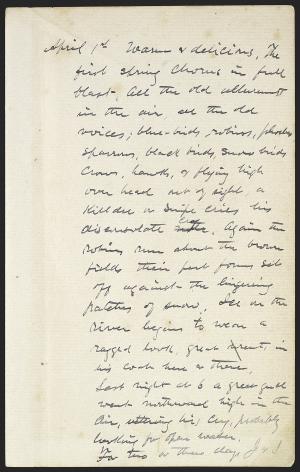 April 1st Warm & delicious, The
first spring chorus in full
blast, All the old allurement
in the air all the old
voices; blue-birds, robins, phoebes
sparrows, black birds, snow birds
crows, hawks, & flying high
over head out of sight, a
Killdee or Snipe cries his
disconsolate cry. Again the
Robins run about the brown
fields their forms set
off against the lingering
patches of snow, Ice on the
river begins to wear a
ragged look, great rents in
his coat here & there,
Last night at 6 a great gull
went northward high in the
air, uttering his cry, probably
looking for open water.
For two or three days J & I